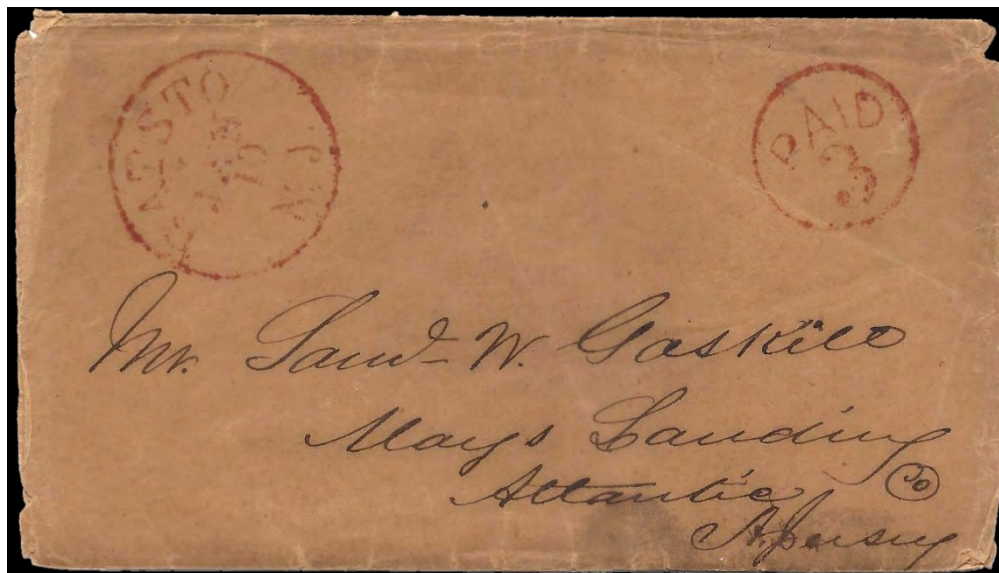 BATSTO
10
N.J
PAID
3
Mr. Saml W. Gaskill
Mays Landing
Atlantic Co
N. Jersey